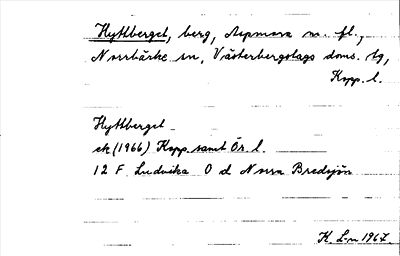 Hyttberget, berg, Aspmora m. fl.,
Norrbärke sn, Västerbergslags doms. tg,
Kopp. l.
Hyttberget
ek (1966) Kopp. samt Ör. l.
12 F Ludvika O d Norra Bredsjön
K. L-n 1967.